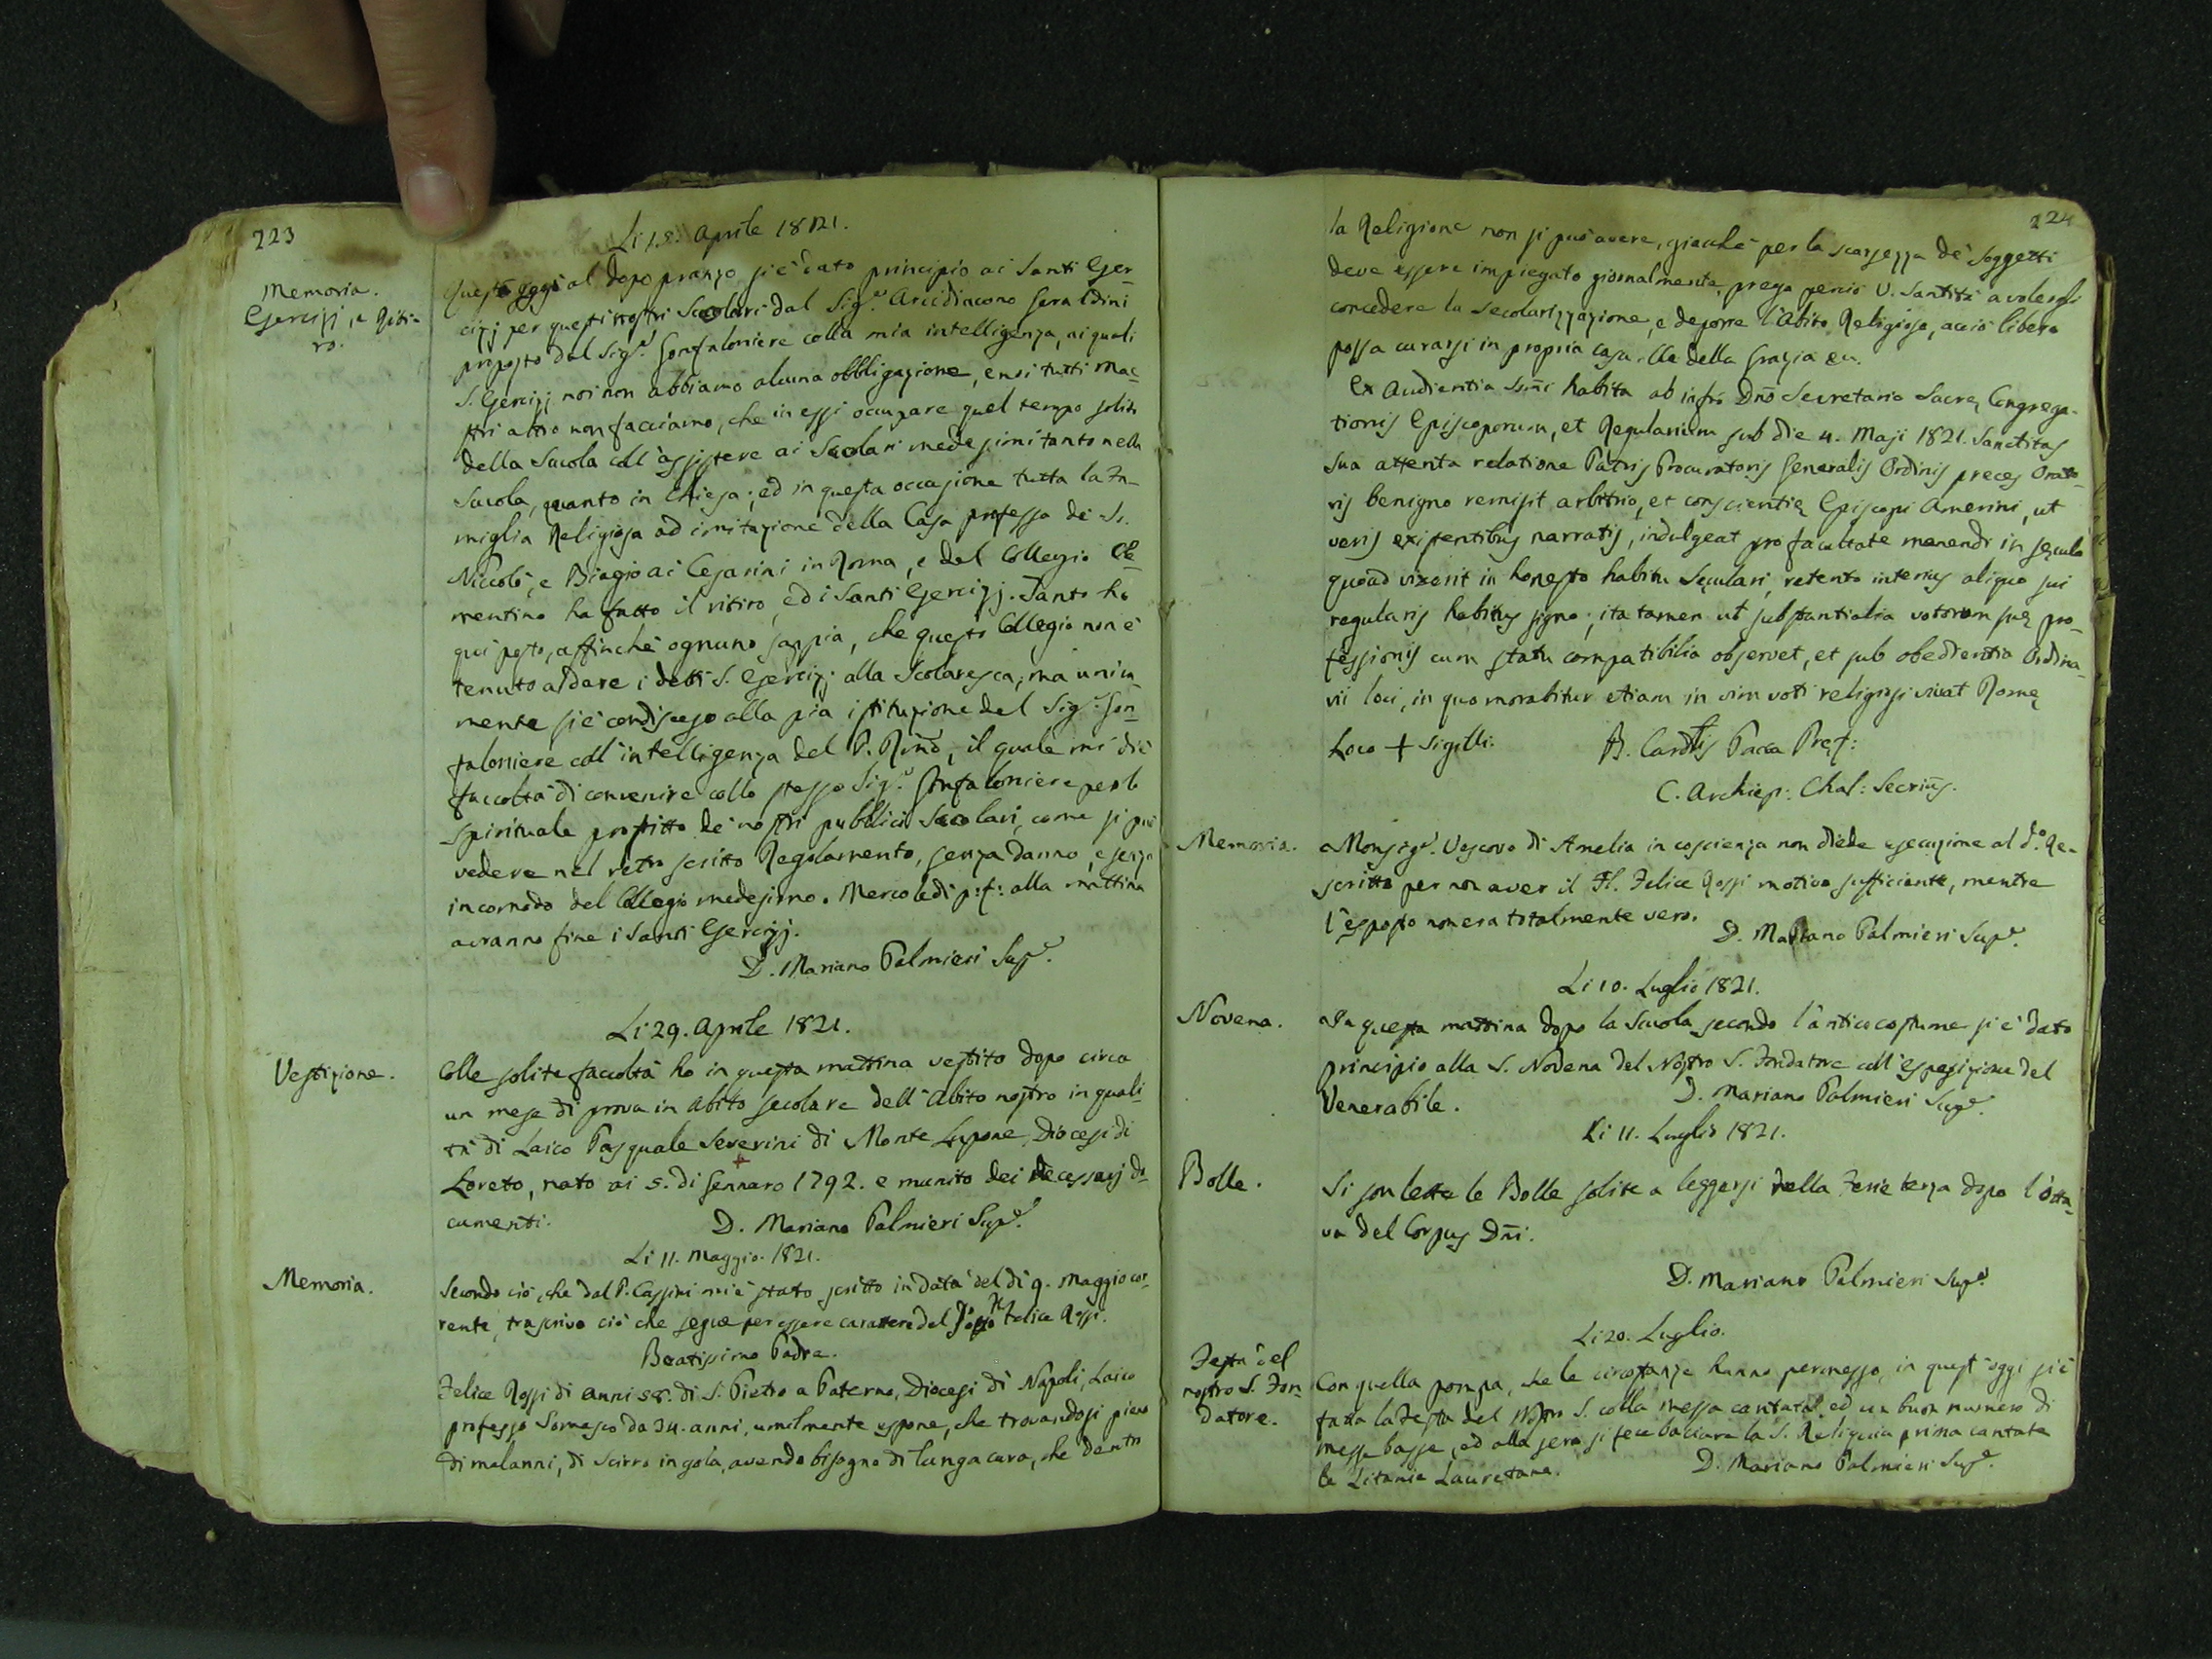 223
Memoria.
Esercizj, e Riti-
ro.
Li 18. Aprile 1821.
Quest'oggi al dopo pranzo si è dato principio ai Santi Eser-
cizj per questi nostri Scolari dal Sig.e Arcidiacono Geraldini
proposto dal Sig.e Gonfaloniere colla mia intelligenza, ai quali
S. Esercizj noi non abbiamo alcuna obbligazione, e noi tutti Mae-
stri altro non facciamo, che in essi occupare quel tempo solito
della Scuola coll'assistere ai Scolari medesimi tanto nella
Scuola, quanto in Chiesa; ed in questa occasione tutta la Fa-
miglia Religiosa ad imitazione della Casa professa de' Ss.
Niccolò, e Biagio ai Cesarini in Roma, e del Collegio Cle-
mentino ha fatto il ritiro, ed i Santi Esercizj. Tanto ho
qui posto, affinchè ognuno sappia, che questo Collegio non è
tenuto a dare i detti S. Esercizj alla Scolaresca, ma unica-
mente si è condisceso alla pia istituzione del Sig.e Gon-
faloniere coll'intelligenza del P. Rm̃o, il quale mi diè
facoltà di convenire collo stesso Sig.e Gonfaloniere per lo
spirituale profitto de' nostri pubblici Scolari, come si può
vedere nel retro scritto Regolamento, senza danno, e senza
incomodo del Collegio medesimo. Mercoledì p: f: alla mattina
avranno fine i Santi Esercizj.
D. Mariano Palmieri Sup.e
Li 29. Aprile 1821.
Vestizione.
Colle solite facoltà ho in questa mattina vestito dopo circa
un mese di prova in abito secolare dell'Abito nostro in quali-
tà di Laico Pasquale Severini di Monte Lupone, Diocesi di
Loreto, nato ai 5. di Gennaro 1792. e munito dei necessarj do-
cumenti.
D. Mariano Palmieri Sup.e
Li 11. Maggio. 1821.
Memoria.
Secondo ciò, che dal P. Cassini mi è stato scritto in data del dì 9. Maggio cor-
rente, trascrivo ciò che segue per essere carattere del Felice Rossi.
Beatissimo Padre.
Felice Rossi di anni 58. di S. Pietro a Paterno, Diocesi di Napoli, Laico
professo Somasco da 34. anni, umilmente espone, che trovandosi pieno
di malanni, di Scirro in gola, avendo bisogno di lunga cura, che dentro
224
la Religione non si può avere, giacchè per la scarsezza de' Soggetti
deve essere impiegato giornalmente, prega perciò V. Santità a volergli
concedere la Secolarizzazione, e deporre l'Abito Religioso, acciò libero
possa curarsi in propria casa. Che della Grazia ec.
Ex Audientia Ssm̃i habita ab infro Dño Secretario Sacrę Congrega-
tionis Episcoporum, et Regularium sub die 4. Maji 1821. Sanctitas
Sua attenta relatione Patris Procuratoris Generalis Ordinis preces Orato-
ris benigno remisit arbitrio, et conscientię Episcopi Amerini, ut
veris existentibus narratis, indulgeat pro facultate manendi in sęculo
quoad vixerit in honesto habitu Sęculari, retento interius aliquo sui
regularis habitus signo; ita tamen ut substantialia votorum suę pro-
fessionis cum statu compatibilia observet, et sub obedientia Ordina-
rii loci, in quo morabitur etiam in vim voti religiosi vivat Romę
Loco + Sigilli.
B. Cardlis Pacca Pręf:
C. Archiep: Chal: Secrius.
Memoria.
Monsig.e Vescovo di Amelia in coscienza non diede esecuzione al d.o Re-
scritto per non aver il Fl. Felice Rossi motivo sufficiente, mentre
l'esposto non era totalmente vero.
D. Mariano Palmieri Sup.e
Li 10. Luglio 1821.
Novena.
In questa mattina dopo la Scuola secondo l'antico costume si è dato
principio alla S. Novena del Nostro S. Fondatore coll'esposizione del
Venerabile.
D. Mariano Palmieri Sup.e
Li 11. Luglio 1821.
Bolle.
Si son lette le Bolle solite a leggersi nella Feria terza dopo l'otta-
va del Corpus Dñi.
D. Mariano Palmieri Sup.e
Li 20. Luglio.
Festa del
nostro S. Fon-
datore.
Con quella pompa, che le circostanze hanno permesso, in quest'oggi si è
fatta la Festa del Nostro S. colla messa cantata ed un buon numero di
messe basse, ed alla sera si fece baciare la S. Reliquia prima cantate
le Litanie Lauretane.
D. Mariano Palmieri Sup.e